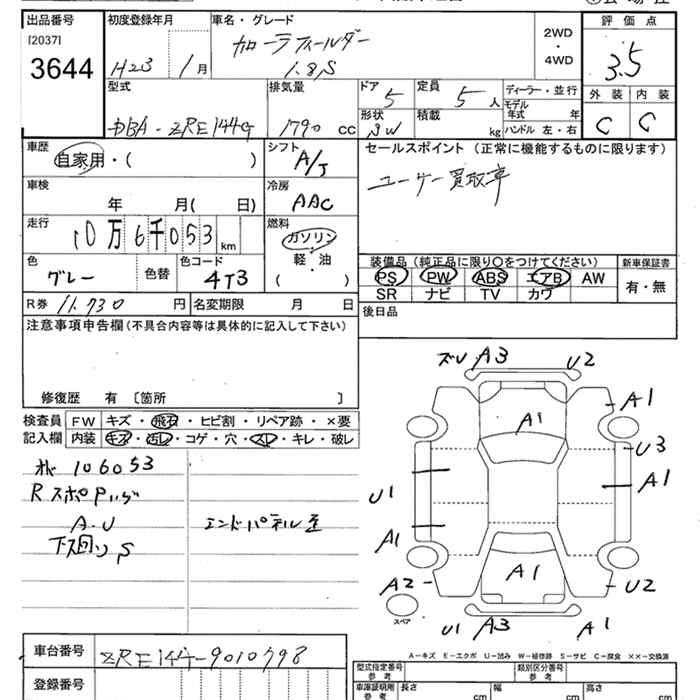 出品番号 初度登録年月 車名・グレード 評価点
[2037] カローラフィールダー 2WD
3644 H23 1月 1.8S ・ 3.5
4WD
型式 排気量 ドア 定員 ディーラー・並行 外装 内装
5 5人 モデル年式 年
DBA-ZRE144G 1790 CC 形状 積載 kg ハンドル 左・右 C C
車歴 シフト セールスポイント (正常に機能するものに限ります)
自家用・( ) A/T ユーザー買取車
車検 冷房
年 月( 日) AAC
走行 燃料
10万6千053 km ガソリン
軽・油
( )
色 色替 色コード 装備品 (純正品に限り○をつけてください) 新車保証書
グレー 4T3 PS PW ABS エアB AW 有・無
SR ナビ TV カワ
R券 11,730 円 名変期限 月 日 後日品
注意事項申告欄 (不具合内容等は具体的に記入して下さい)
修復歴 有 〔箇所 〕
検査員 FW キズ・飛石・ヒビ割・リペア跡・×要
記入欄 内装 キズ・汚レ・コゲ・穴・スレ・キレ・破レ
106053
A.U エンドパネル
下回り S
A3 U2
A1
A1
U3
A1
U1
A1
A2 A1 U2
スペア
U1 A3 A1
A-キズ E-エクボ U-凹み W-補修跡 S-サビ C-腐食 ××-交換済
車台番号 ZRE144-9010798
登録番号
型式指定番号 参考 類別区分番号 参考
車庫証明用 参考 長さ cm 幅 cm 高さ cm